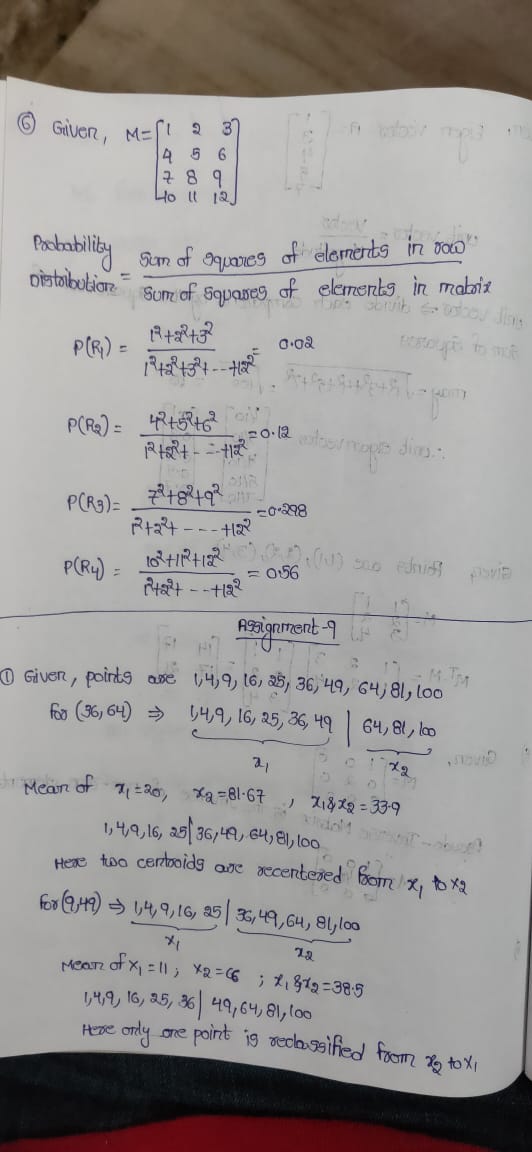 ⑥ Given, M = [1 2 3
4 5 6
7 8 9
10 11 12]
Probability Distribution = Sum of squares of elements in row / Sum of squares of elements in matrix
P(R₁) = 1²+2²+3² / 1²+2²+3²+--+12² = 0.02
P(R₂) = 4²+5²+6² / 1²+2²+---+12² = 0.12
P(R₃) = 7²+8²+9² / 1²+2²+----+12² = 0.298
P(R₄) = 10²+11²+12² / 1²+2²+--+12² = 0.56
Assignment-9
① Given, points are 1,4,9,16,25,36,49,64,81,100
for (36,64) ⇒ 1,4,9,16,25,36,49 | 64,81,100
x₁ x₂
Mean of x₁=20, x₂=81.67, x₁&x₂=33.9
1,4,9,16,25|36,49,64,81,100
Here two centroids are recentered from x₁ to x₂
for (9,49) ⇒ 1,4,9,16,25 | 36,49,64,81,100
x₁ x₂
Mean of x₁=11; x₂=66; x₁&x₂=38.5
1,4,9,16,25,36| 49,64,81,100
Here only one point is reclassified from x₂ to x₁